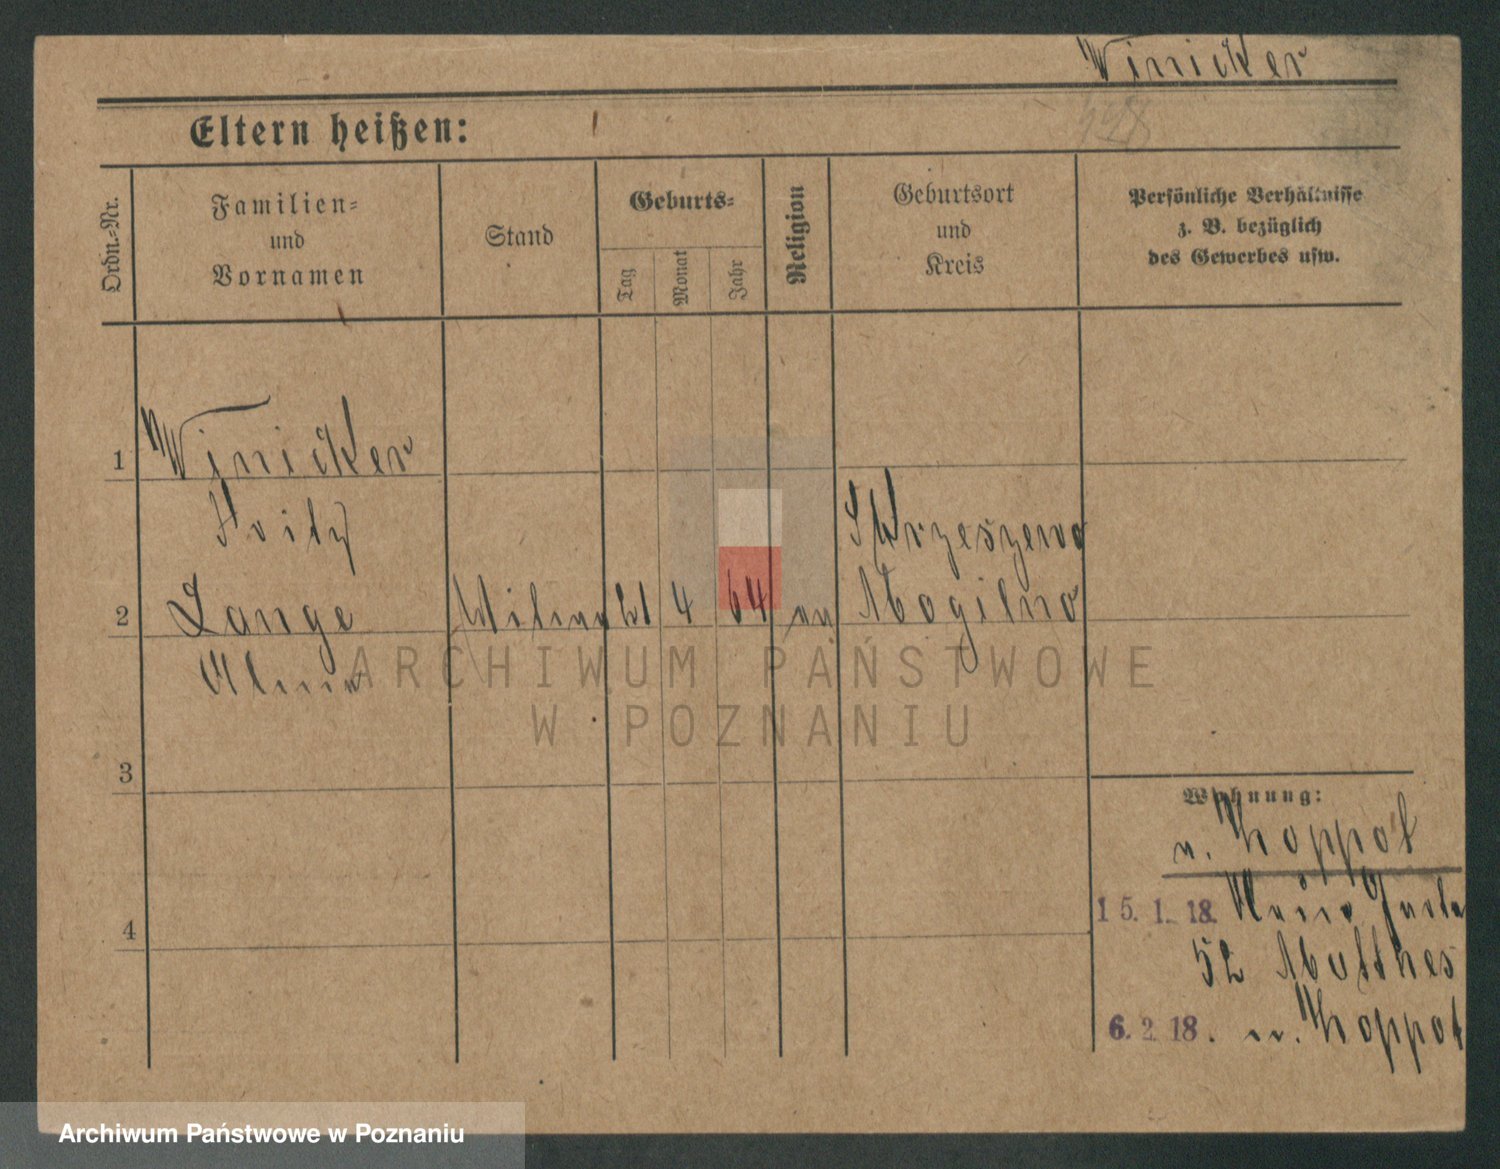 Winicker
Eltern heißen:
Ordn.=Nr.
Familien=
und
Vornamen
Stand
Geburts=
Tag
Monat
Jahr
Religion
Geburtsort
und
Kreis
Persönliche Verhältnisse
z. B. bezüglich
des Gewerbes usw.
1
Winicker
Fritz
Skrzeszewo
2
Lange
4
64
Mogilno
ARCHIWUM PAŃSTWOWE
W POZNANIU
3
Wohnung:
n. Zoppot
4
15. 1. 18.
52 Matthes
6. 2. 18. n. Zoppot
Archiwum Państwowe w Poznaniu